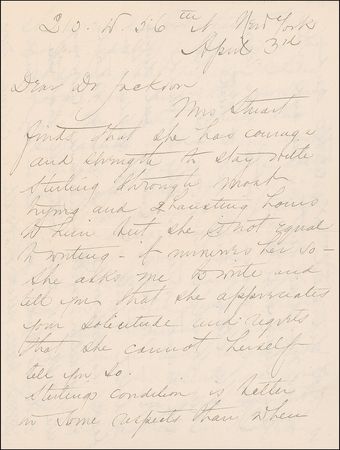 210. W. 56th St. New York
April 3rd
Dear Dr Jackson
Mrs Stuart
finds that she has courage
and strength to stay with
Sterling through most
trying and exhausting hours
to him but she is not equal
to writing - it unnerves her so -
She asks me to write and
tell you that she appreciates
your solicitude and regrets
that she cannot herself
tell you so.
Sterlings condition is better
in some respects than when